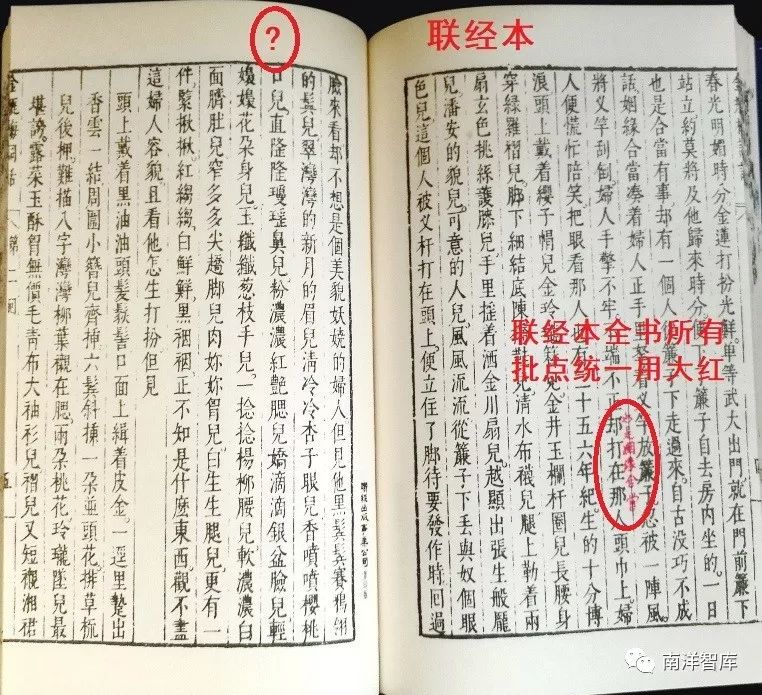 ?
联经本
春光明媚時分金蓮打扮光鮮單等武大出門就在門前簾下
站立約莫將及他歸來時分簾子自去房内坐的一日
也是合當有事却有一個人從簾子下走過來自古没巧不成
話姻緣合當凑着婦人正手里拿着叉竿放簾子忽被一陣風
將叉竿刮倒婦人手擎不牢不端不正却打在那人頭巾上婦
人便慌忙陪笑把眼看那人也有二十五六年紀生的十分博
浪頭上戴着纓子帽兒金玲瓏簪兒金井玉欄杆圈兒長腰身
穿綠羅褶兒脚下細結底陳橋鞋兒清水布襪兒腿上勒着兩
扇玄色挑絲護膝兒手里摇着洒金川扇兒越顯出張生般龐
兒潘安的貌兒可意的人兒風風流流從簾子下丟與奴個眼
色兒這個人被叉杆打在頭上便立住了脚待要發作時回過
联经本全书所有
批点统一用大红
臉來看却不想是個美貌妖嬈的婦人但見他黑鬒鬒賽鴉翎
的鬢兒翠灣灣的新月的眉兒清冷冷杏子眼兒香噴噴櫻桃
口兒直隆隆瓊瑶鼻兒粉濃濃紅艷腮兒嬌滴滴銀盆臉兒輕
嬝嬝花朵身兒玉纖纖葱枝手兒一捻捻楊柳腰兒軟濃濃白
面臍肚兒窄多多尖趫脚兒肉奶奶胷兒白生生腿兒更有一
件緊揪揪紅縐縐白鮮鮮黑裀裀正不知是什麽東西觀不盡
這婦人容貌且看他怎生打扮但見
頭上戴着黑油油頭髮䯼髻口面上緝着皮金一逕里踅出
香雲一結周圍小簪兒齊揷六鬢斜揷一朶並頭花排草梳
兒後押難描八字灣灣柳葉襯在腮兩朶桃花玲瓏墜兒最
堪誇露菜玉酥胷無價毛青布大袖衫兒褶兒又短襯湘裙
金瓶梅詞話
第二囬
聯經出版事業公司
南洋智库